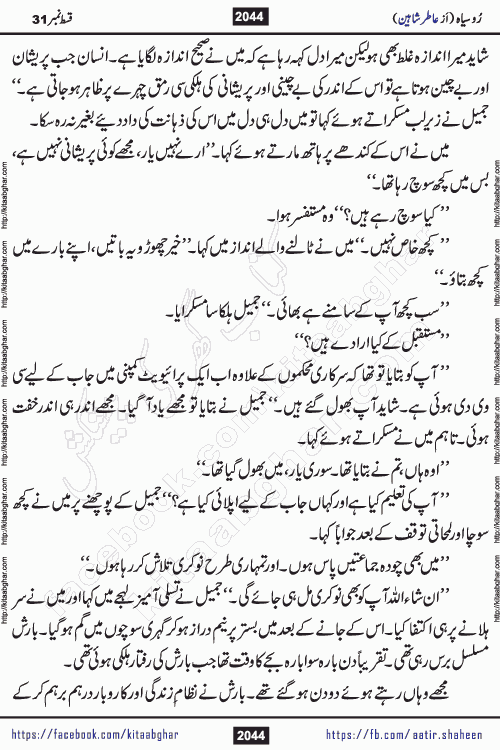 رُوسیاہ (از عاطر شاہین) 2044 قسط نمبر 31
شاید میرا اندازہ غلط بھی ہو لیکن میرا دل کہہ رہا ہے کہ میں نے صحیح اندازہ لگایا ہے۔ انسان جب پریشان
اور بے چین ہوتا ہے تو اس کے اندر کی بے چینی اور پریشانی کی ہلکی سی رمق چہرے پر ظاہر ہو جاتی ہے۔‘‘
جمیل نے زیرلب مسکراتے ہوئے کہا تو میں دل ہی دل میں اس کی ذہانت کی داد دیئے بغیر نہ رہ سکا۔
میں نے اس کے کندھے پر ہاتھ مارتے ہوئے کہا۔ ’’ارے نہیں یار، مجھے کوئی پریشانی نہیں ہے،
بس میں کچھ سوچ رہا تھا۔‘‘
’’کیا سوچ رہے ہیں؟‘‘ وہ مستفسر ہوا۔
’’کچھ خاص نہیں۔‘‘ میں نے ٹالنے والے انداز میں کہا۔ ’’خیر چھوڑو یہ باتیں، اپنے بارے میں
کچھ بتاؤ۔‘‘
’’سب کچھ آپ کے سامنے ہے بھائی۔‘‘ جمیل ہلکا سا مسکرایا۔
’’مستقبل کے کیا ارادے ہیں؟‘‘
’’آپ کو بتایا تو تھا کہ سرکاری محکموں کے علاوہ اب ایک پرائیویٹ کمپنی میں جاب کے لیے سی
وی دی ہوئی ہے۔ شاید آپ بھول گئے ہیں۔‘‘ جمیل نے بتایا تو مجھے یاد آ گیا۔ مجھے اندر ہی اندر خفت
ہوئی۔ تاہم میں نے مسکراتے ہوئے کہا۔
’’اوہ ہاں، تم نے بتایا تھا۔ سوری یار، میں بھول گیا تھا۔‘‘
’’آپ کی تعلیم کیا ہے اور کہاں جاب کے لیے اپلائی کیا ہے؟‘‘ جمیل کے پوچھنے پر میں نے کچھ
سوچا اور لمحاتی توقف کے بعد جواباً کہا۔
’’میں بھی چودہ جماعتیں پاس ہوں۔ اور تمہاری طرح نوکری تلاش کر رہا ہوں۔‘‘
’’ان شاء اللہ آپ کو بھی نوکری مل ہی جائے گی۔‘‘ جمیل نے تسلی آمیز لہجے میں کہا اور میں نے سر
ہلانے پر ہی اکتفا کیا۔ اس کے جانے کے بعد میں بستر پر نیم دراز ہو کر گہری سوچوں میں گم ہو گیا۔ بارش
مسلسل برس رہی تھی۔ تقریباً دن بارہ سوا بارہ بجے کا وقت تھا جب بارش کی رفتار ہلکی ہوئی تھی۔
مجھے وہاں رہتے ہوئے دو دن ہو گئے تھے۔ بارش نے نظامِ زندگی اور کاروبار درہم برہم کر کے
https://facebook.com/kitaabghar 2044 https://fb.com/aatir.shaheen
http://kitaabghar.com http://kitaabghar.com http://kitaabghar.com http://kitaabghar.com http://kitaabghar.com http://kitaabghar.com
http://kitaabghar.com http://kitaabghar.com http://kitaabghar.com http://kitaabghar.com http://kitaabghar.com http://kitaabghar.com